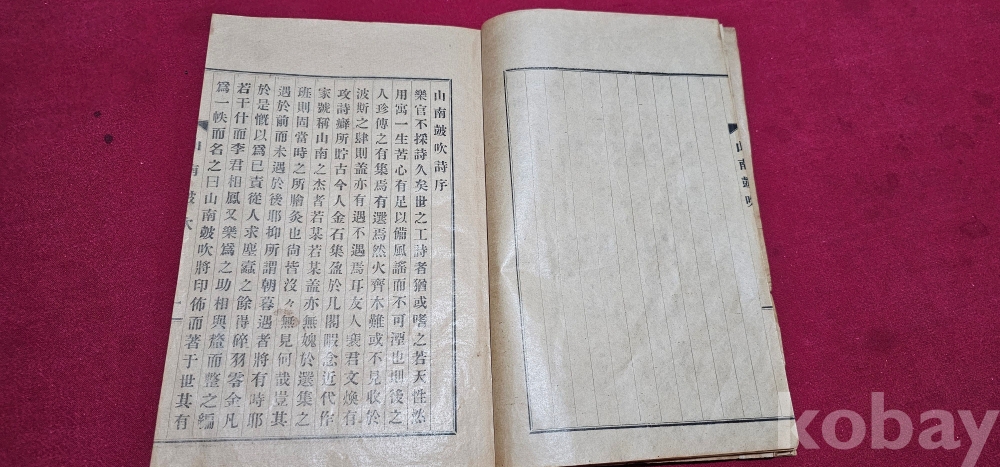 山南皷吹詩序
樂官不採詩久矣世之工詩者猶或嗜之若天性然
用寓一生苦心有足以備風謠而不可湮也則後之
人珍傳之有集焉有選焉然火齊木難或不見收於
波斯之肆則盖亦有遇不遇焉耳友人裵君文煥有
攻詩癖所貯古今人金石集盈於几閣暇念近代作
家號稱山南之杰者若某若某盖亦無媿於選集之
班則固當時之所膾炙也尙皆沒々無見何哉豈其
遇於前而未遇於後耶抑所謂朝暮遇者將有時耶
於是慨以爲己責從人求塵蠹之餘得碎羽零金凡
若干什而李君相鳳又樂爲之助相與釐而整之編
爲一帙而名之曰山南皷吹將印佈而著于世其有
山南皷吹
一
山南皷吹
kobay